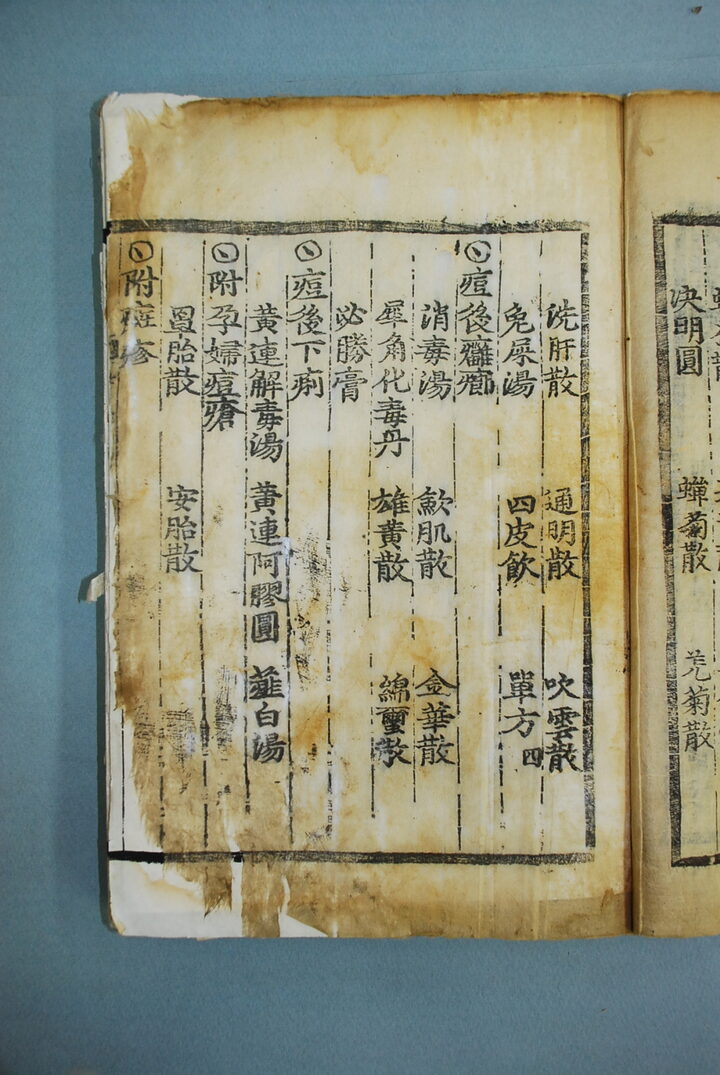 決明圓 蟬菊散 羌菊散
洗肝散 通明散 吹雲散
兔屎湯 四皮飮 單方四
痘後癰癤
消毒湯 歛肌散 金華散
犀角化毒丹 雄黃散 綿璽散
必勝膏
痘後下痢
黃連解毒湯 黃連阿膠圓 薤白湯
附孕婦痘瘡
罩胎散 安胎散
附 疹